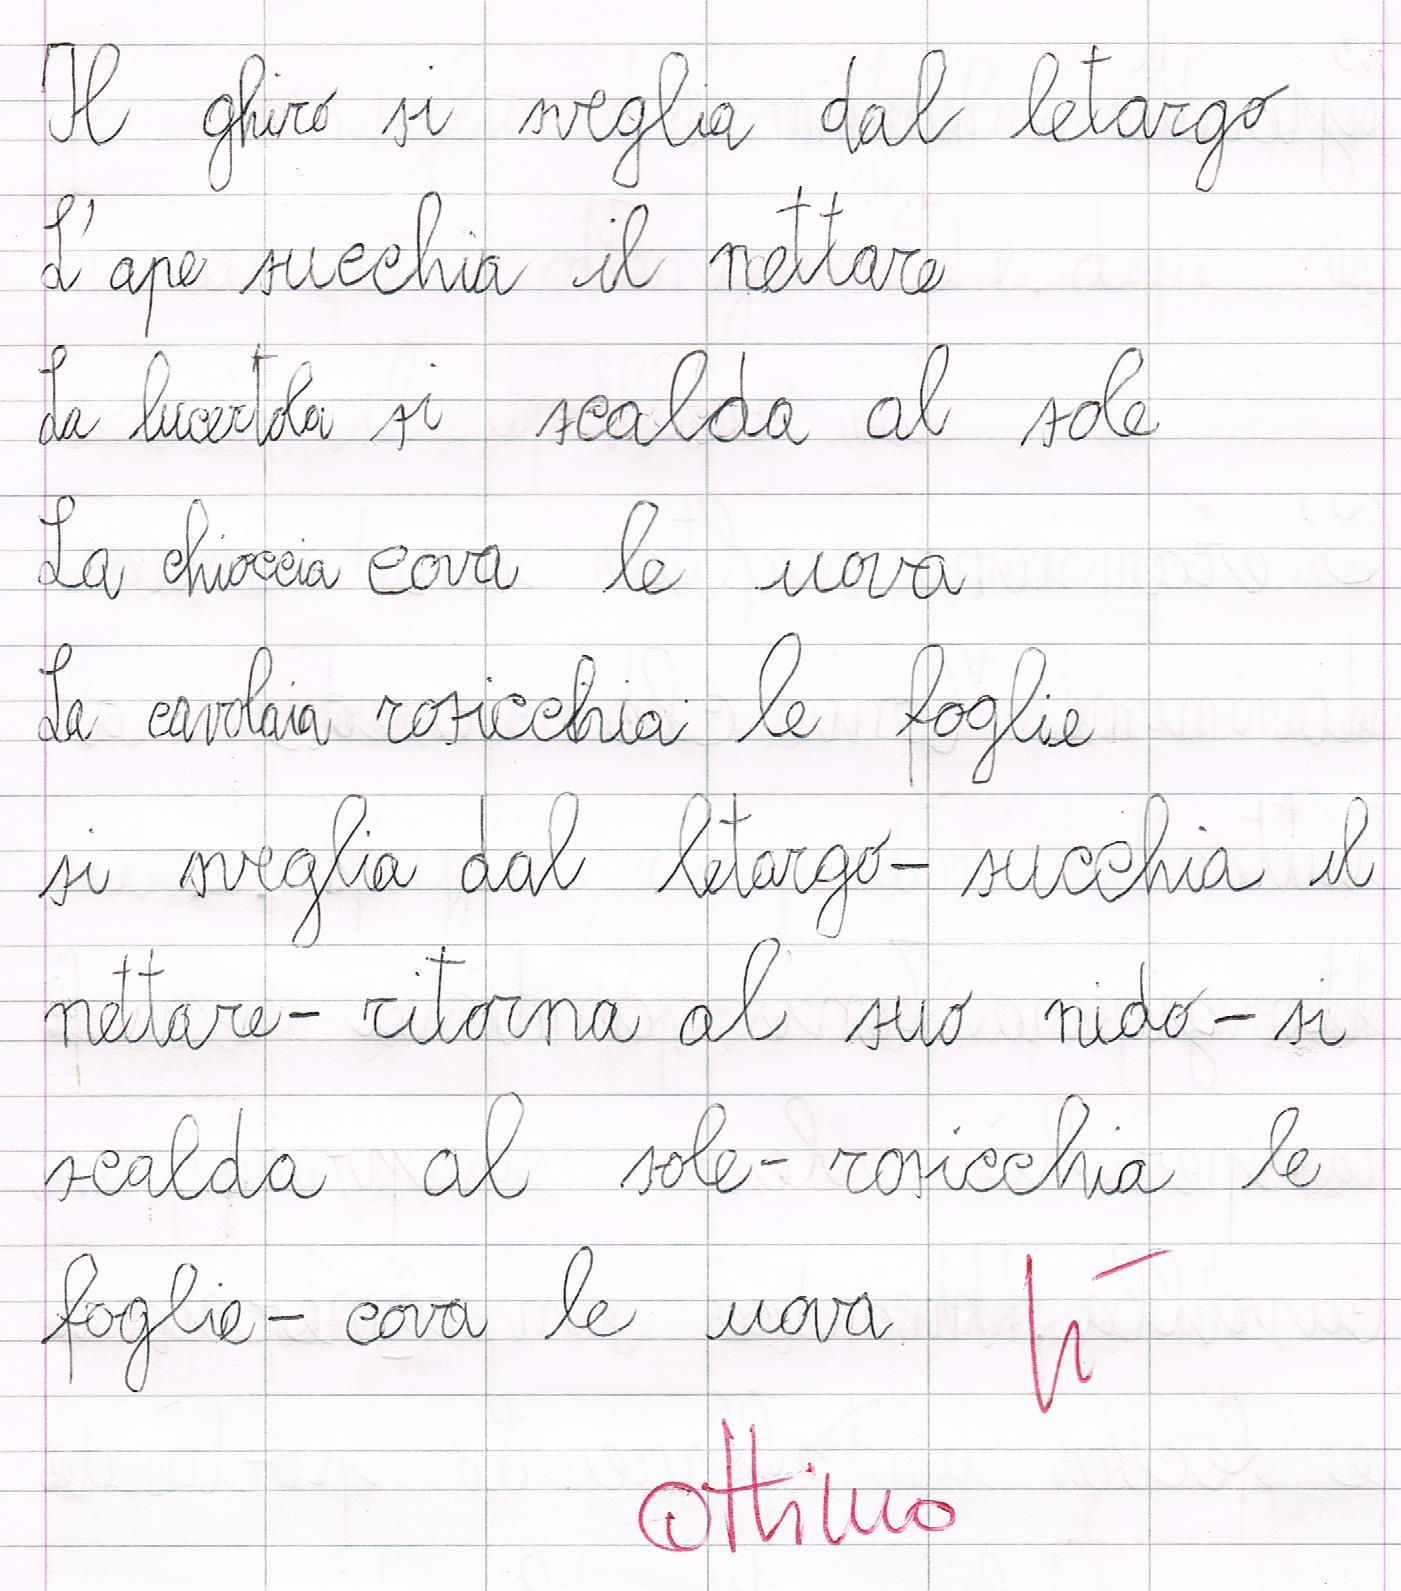 Il ghiro si sveglia dal letargo
L'ape succhia il nettare
La lucertola si scalda al sole
La chioccia cova le uova
La cavolaia rosicchia le foglie
si sveglia dal letargo- succhia il
nettare- ritorna al suo nido- si
scalda al sole- rosicchia le
foglie- cova le uova
ottimo